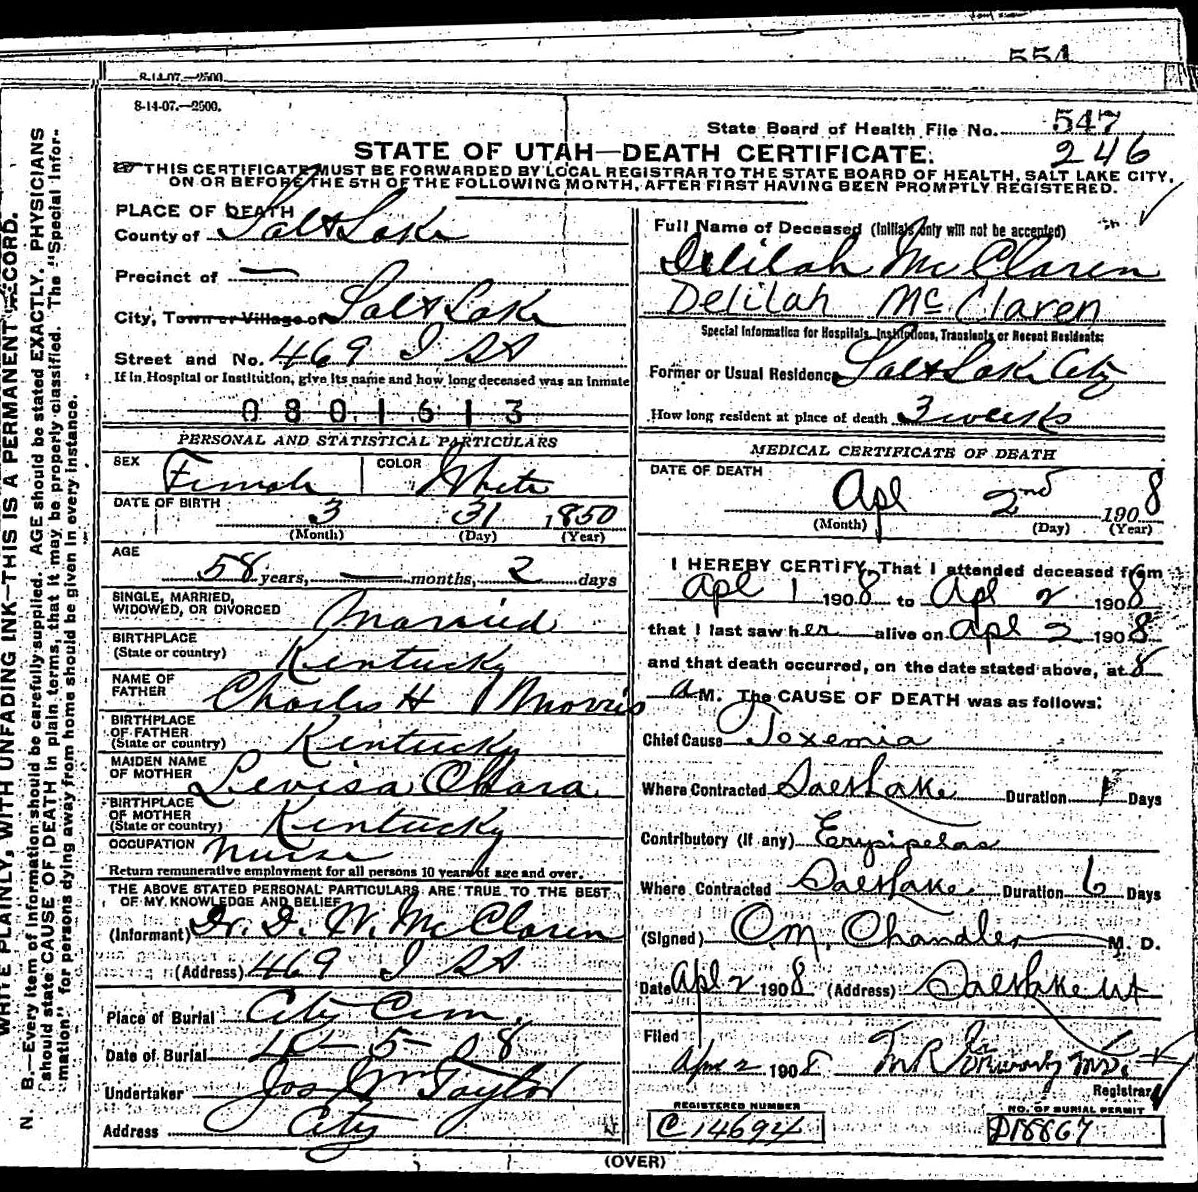 554
8-14-07.—2500.
8-14-07.—2500.
State Board of Health File No. 547
246
STATE OF UTAH—DEATH CERTIFICATE.
THIS CERTIFICATE MUST BE FORWARDED BY LOCAL REGISTRAR TO THE STATE BOARD OF HEALTH, SALT LAKE CITY,
ON OR BEFORE THE 5TH OF THE FOLLOWING MONTH, AFTER FIRST HAVING BEEN PROMPTLY REGISTERED.
PLACE OF DEATH
County of Salt Lake
Precinct of —
City, Town or Village of Salt Lake
Street and No. 469 I St
If in Hospital or Institution, give its name and how long deceased was an inmate
0801613
PERSONAL AND STATISTICAL PARTICULARS
SEX Female COLOR White
DATE OF BIRTH 3 31 1850
(Month) (Day) (Year)
AGE
58 years, — months, 2 days
SINGLE, MARRIED,
WIDOWED, OR DIVORCED Married
BIRTHPLACE
(State or country) Kentucky
NAME OF
FATHER Charles H Morris
BIRTHPLACE
OF FATHER
(State or country) Kentucky
MAIDEN NAME
OF MOTHER Levisa Ohara
BIRTHPLACE
OF MOTHER
(State or country) Kentucky
OCCUPATION Nurse
Return remunerative employment for all persons 10 years of age and over.
THE ABOVE STATED PERSONAL PARTICULARS ARE TRUE TO THE BEST
OF MY KNOWLEDGE AND BELIEF
(Informant) Dr. D. W. McClaren
(Address) 469 I St
Place of Burial City Cem.
Date of Burial 4-5-08
Undertaker Jos Wm Taylor
Address City
Full Name of Deceased (Initials only will not be accepted)
Delilah McClaren
Delilah McClaren
Special Information for Hospitals, Institutions, Transients or Recent Residents:
Former or Usual Residence Salt Lake City
How long resident at place of death 3 weeks
MEDICAL CERTIFICATE OF DEATH
DATE OF DEATH
Apl 2nd 1908
(Month) (Day) (Year)
I HEREBY CERTIFY, That I attended deceased from
Apl 1 1908 to Apl 2 1908
that I last saw her alive on Apl 2 1908
and that death occurred, on the date stated above, at 8
a M. The CAUSE OF DEATH was as follows:
Chief Cause Toxemia
Where Contracted Salt Lake Duration 1 Days
Contributory (if any) Erysipelas
Where Contracted Salt Lake Duration 6 Days
(Signed) O.M. Chandler M. D.
Date Apl 2 1908 (Address) Salt Lake Ut
Filed
Apr 2 1908
Registrar
REGISTERED NUMBER
C 14694
NO. OF BURIAL PERMIT
D18867
(OVER)
WRITE PLAINLY, WITH UNFADING INK—THIS IS A PERMANENT RECORD.
N. B.—Every item of information should be carefully supplied. AGE should be stated EXACTLY. PHYSICIANS
should state CAUSE OF DEATH in plain terms, that it may be properly classified. The "Special Infor-
mation" for persons dying away from home should be given in every instance.